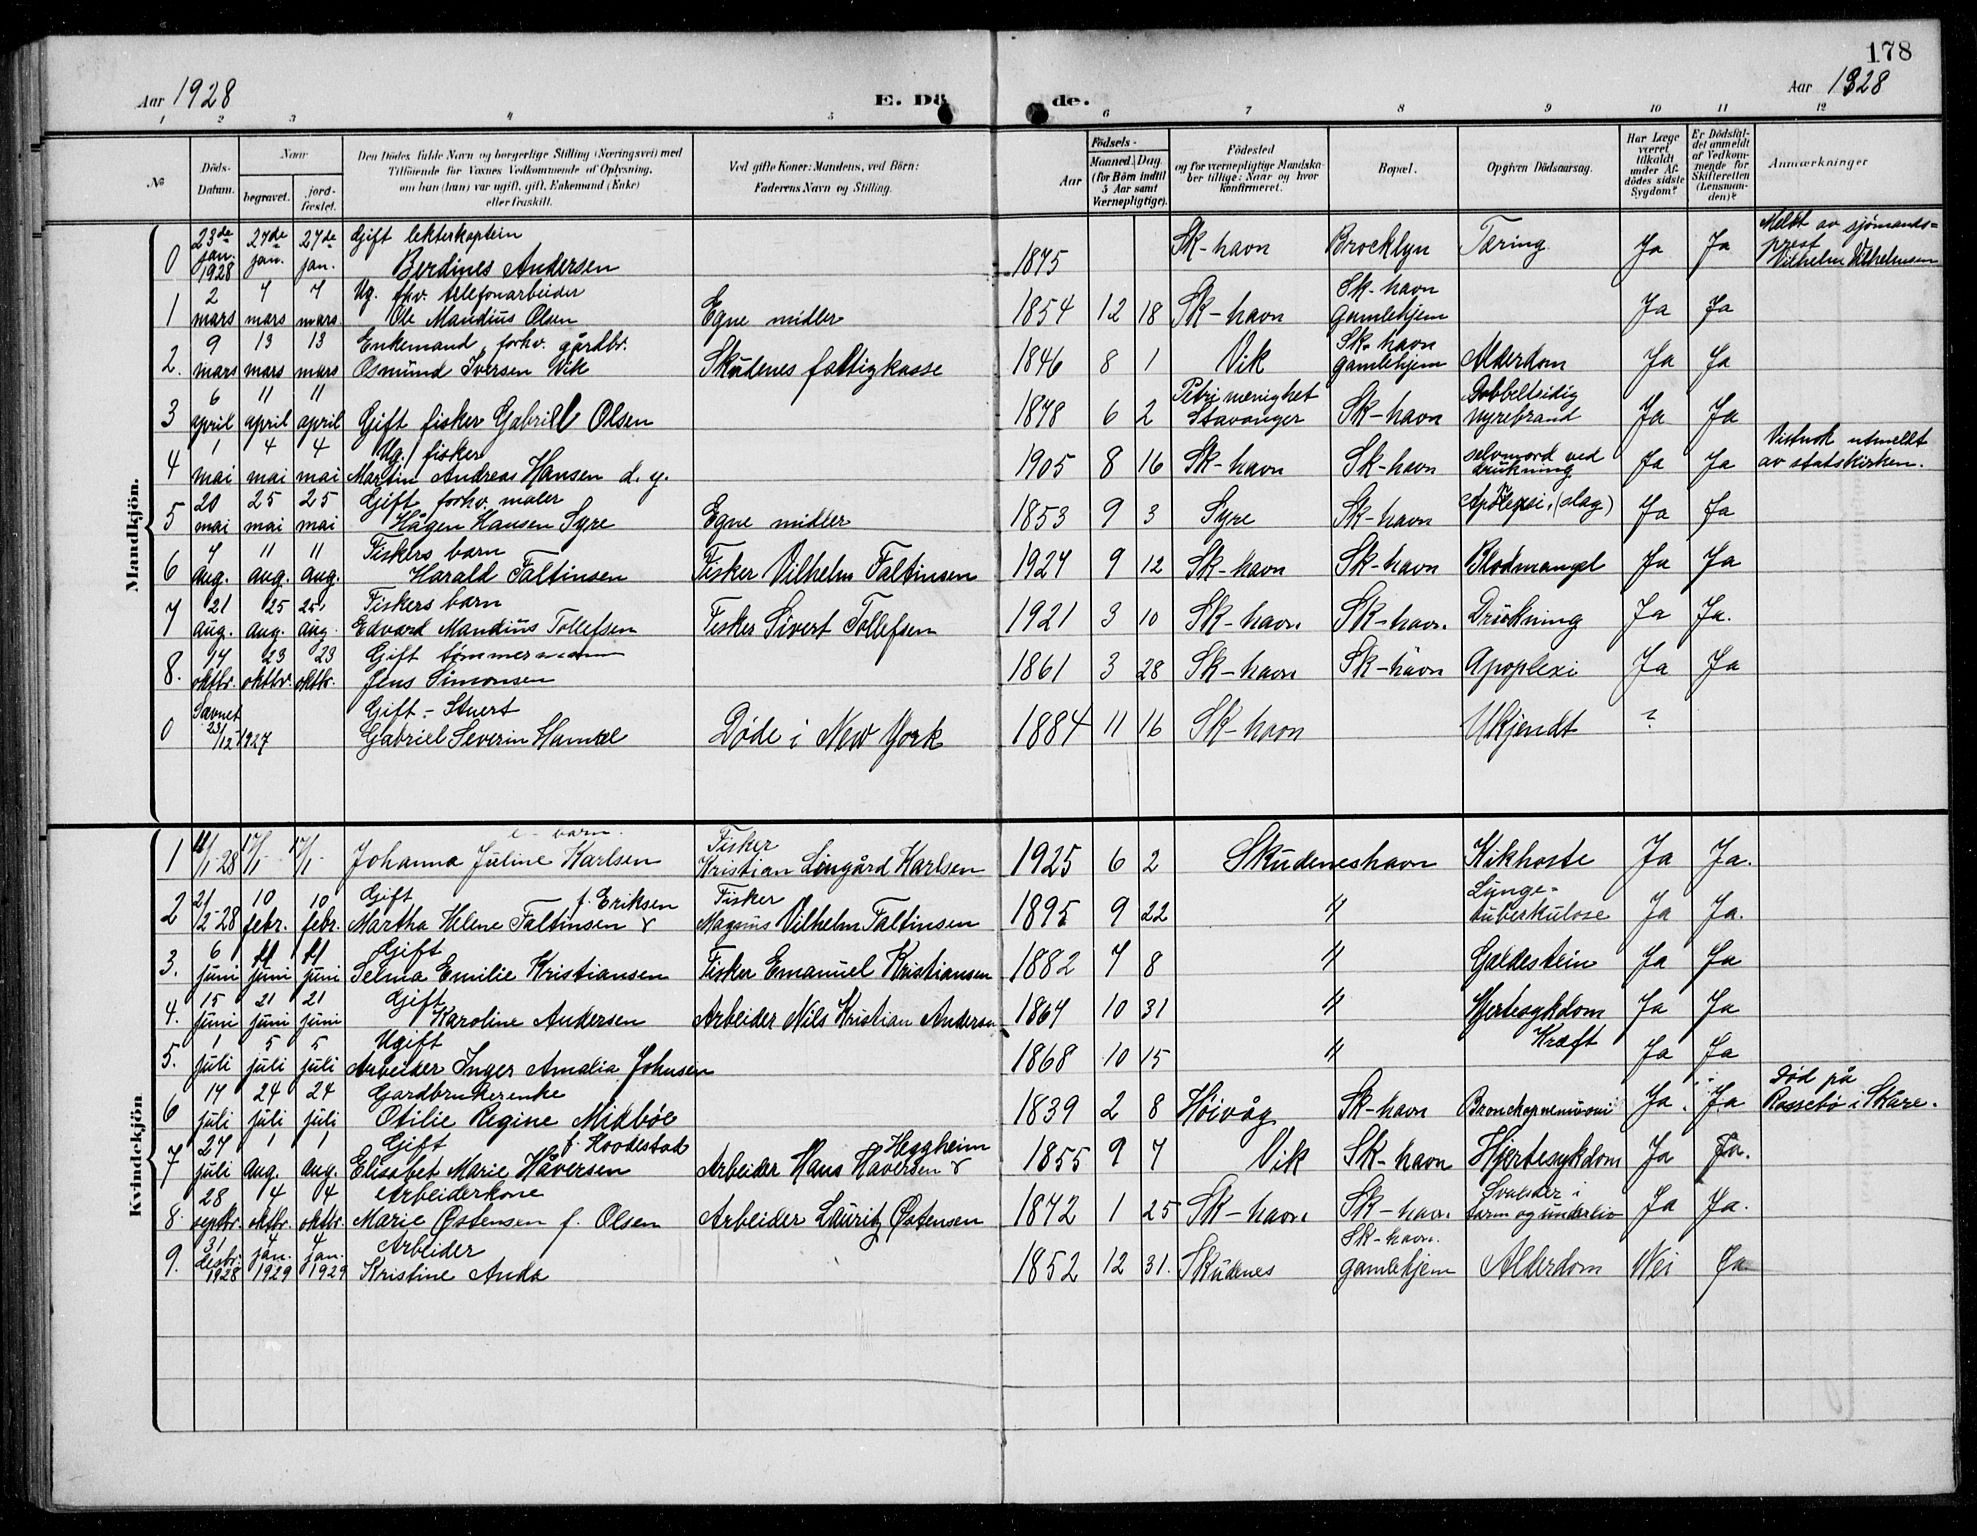 178
Aar 1928
E. Dö
de.
Aar 1928
1 2 3 4 5 6 7 8 9 10 11 12
No
Döds-Datum.
Naar
begravet.
jord-fæstet.
Den Dödes fulde Navn og borgerlige Stilling (Næringsvei) med Tilföiende for Voxnes Vedkommende af Oplysning, om han (hun) var ugift, gift, Enkemand (Enke) eller fraskilt.
Ved gifte Koner: Mandens, ved Börn: Faderens Navn og Stilling.
Aar
Födsels-
Maaned. Dag.
(for Börn indtil 5 Aar samt Værnepligtige).
Födested og for værnepligtige Mandskaber tillige: Naar og hvor konfirmeret.
Bopæl.
Opgiven Dödsaarsag.
Har Læge været tilkaldt under Afdödes sidste Sygdom?
Er Dödsfaldet anmeldt af Vedkommende for Skifteretten (Lensmanden)?
Anmærkninger
Mandkjön.
0 23de jan. 1928 27de jan. 27de jan. Gift lekterkaptein Berdines Andersen 1875 Sk-havn Brocklyn Tæring Ja Ja Meldt av sjömandsprest Vilhelm Vilhelmsen
1 2 mars 7 mars 7 mars Ug. fhv. telefonarbeider Ole Mandius Olsen Egne midler 1854 12 18 Sk-havn Sk-havn gamlehjem Ja Ja
2. 9 mars 13 mars 13 mars Enkemand, forhv. gårdbr. Osmund Iversen Vik Skudenes fattigkasse 1846 8 1 Vik Sk-havn gamlehjem Alderdom Ja Ja
3 6 april 11 april 11 april Gift fisker Gabriel Olsen 1878 6 2 Petri menighet Stavanger Sk-havn Dobbeltsidig nyrebrand Ja Ja
4 1 mai 4 mai 4 mai Ug. fisker Martin Andreas Hansen d. y. 1905 8 16 Sk-havn Sk-havn selvmord ved drukning Ja Ja Vistnok utmeldt av statskirken.
5 20 mai 25 mai 25 mai Gift forhv. maler Hågen Hansen Syre Egne midler 1853 9 3 Syre Sk-havn Apoplexi, (slag) Ja Ja
6 7 aug. 11 aug. 11 aug. Fiskers barn Harald Faltinsen Fisker Vilhelm Faltinsen 1927 9 12 Sk-havn Sk-havn Blodmangel Ja Ja
7 21 aug. 25 aug. 25 aug. Fiskers barn Edvard Mandius Tollefsen Fisker Sivert Tollefsen 1921 3 10 Sk-havn. Sk-havn. Drukning Ja Ja.
8. 17 oktbr. 23 oktbr. 23 oktbr. Gift tömmermann Jens Simonsen 1861 3 28 Sk-havn Sk-havn Apoplexi Ja Ja
0 Savnet 23/12 1927 Gift - Stuert Gabriel Severin Døde i New York 1884 11 16 Sk-havn Ukjendt ?
Kvindekjön
1 11/1-28 17/1 17/1 barn. Johanna Juline Karlsen Fisker Kristian Lingård Karlsen 1925 6 2 Skudeneshavn Kikhoste Ja Ja.
2 2/2-28 10 febr. 10 febr. Gift f. Eriksen Martha Helene Faltinsen Fisker Magnus Vilhelm Faltinsen 1895 9 22 " Lunge-tuberkulose Ja Ja.
3. 6 juni 11 juni 11 juni Gift Selma Emilie Kristiansen Fisker Emanuel Kristiansen 1882 7 8 " Galdestein Ja Ja
4. 15 juni 21 juni 21 juni Gift Karoline Andersen Arbeider Nils Kristian Andersen 1867 10 31 " Hjertesykdom Ja Ja
5. 1 juli 5 juli 5 juli Ugift Arbeider Inger Amalia Johnsen 1868 10 15 " Kræft Ja Ja
6 17 juli 24 juli 24 juli Gardbrukerenke Otilie Regine Midbøe 1839 2 8 Høivåg Sk-havn Bronchopnevmoni Ja Ja Død på Rossebö i Skåre.
7 27 juli 1 aug. 1 aug. Gift Elisabet Marie Håversen Arbeider Hans Håversen Heggheim 1855 9 7 Vik Sk-havn Hjertesykdom Ja Ja.
8. 28 septbr. 4 oktbr. 4 oktbr. Arbeiderkone Marie Østensen f. Olsen Arbeider Lauritz Østensen 1872 1 25 Sk-havn. Sk-havn. Svulster i tarm og underliv Ja Ja.
9. 31 desbr. 1928 4 jan. 1929 4 jan. 1929 Arbeider Kristine Anda 1852 12 31. Skudenes Sk-havn. gamlehjem Alderdom Nei Ja